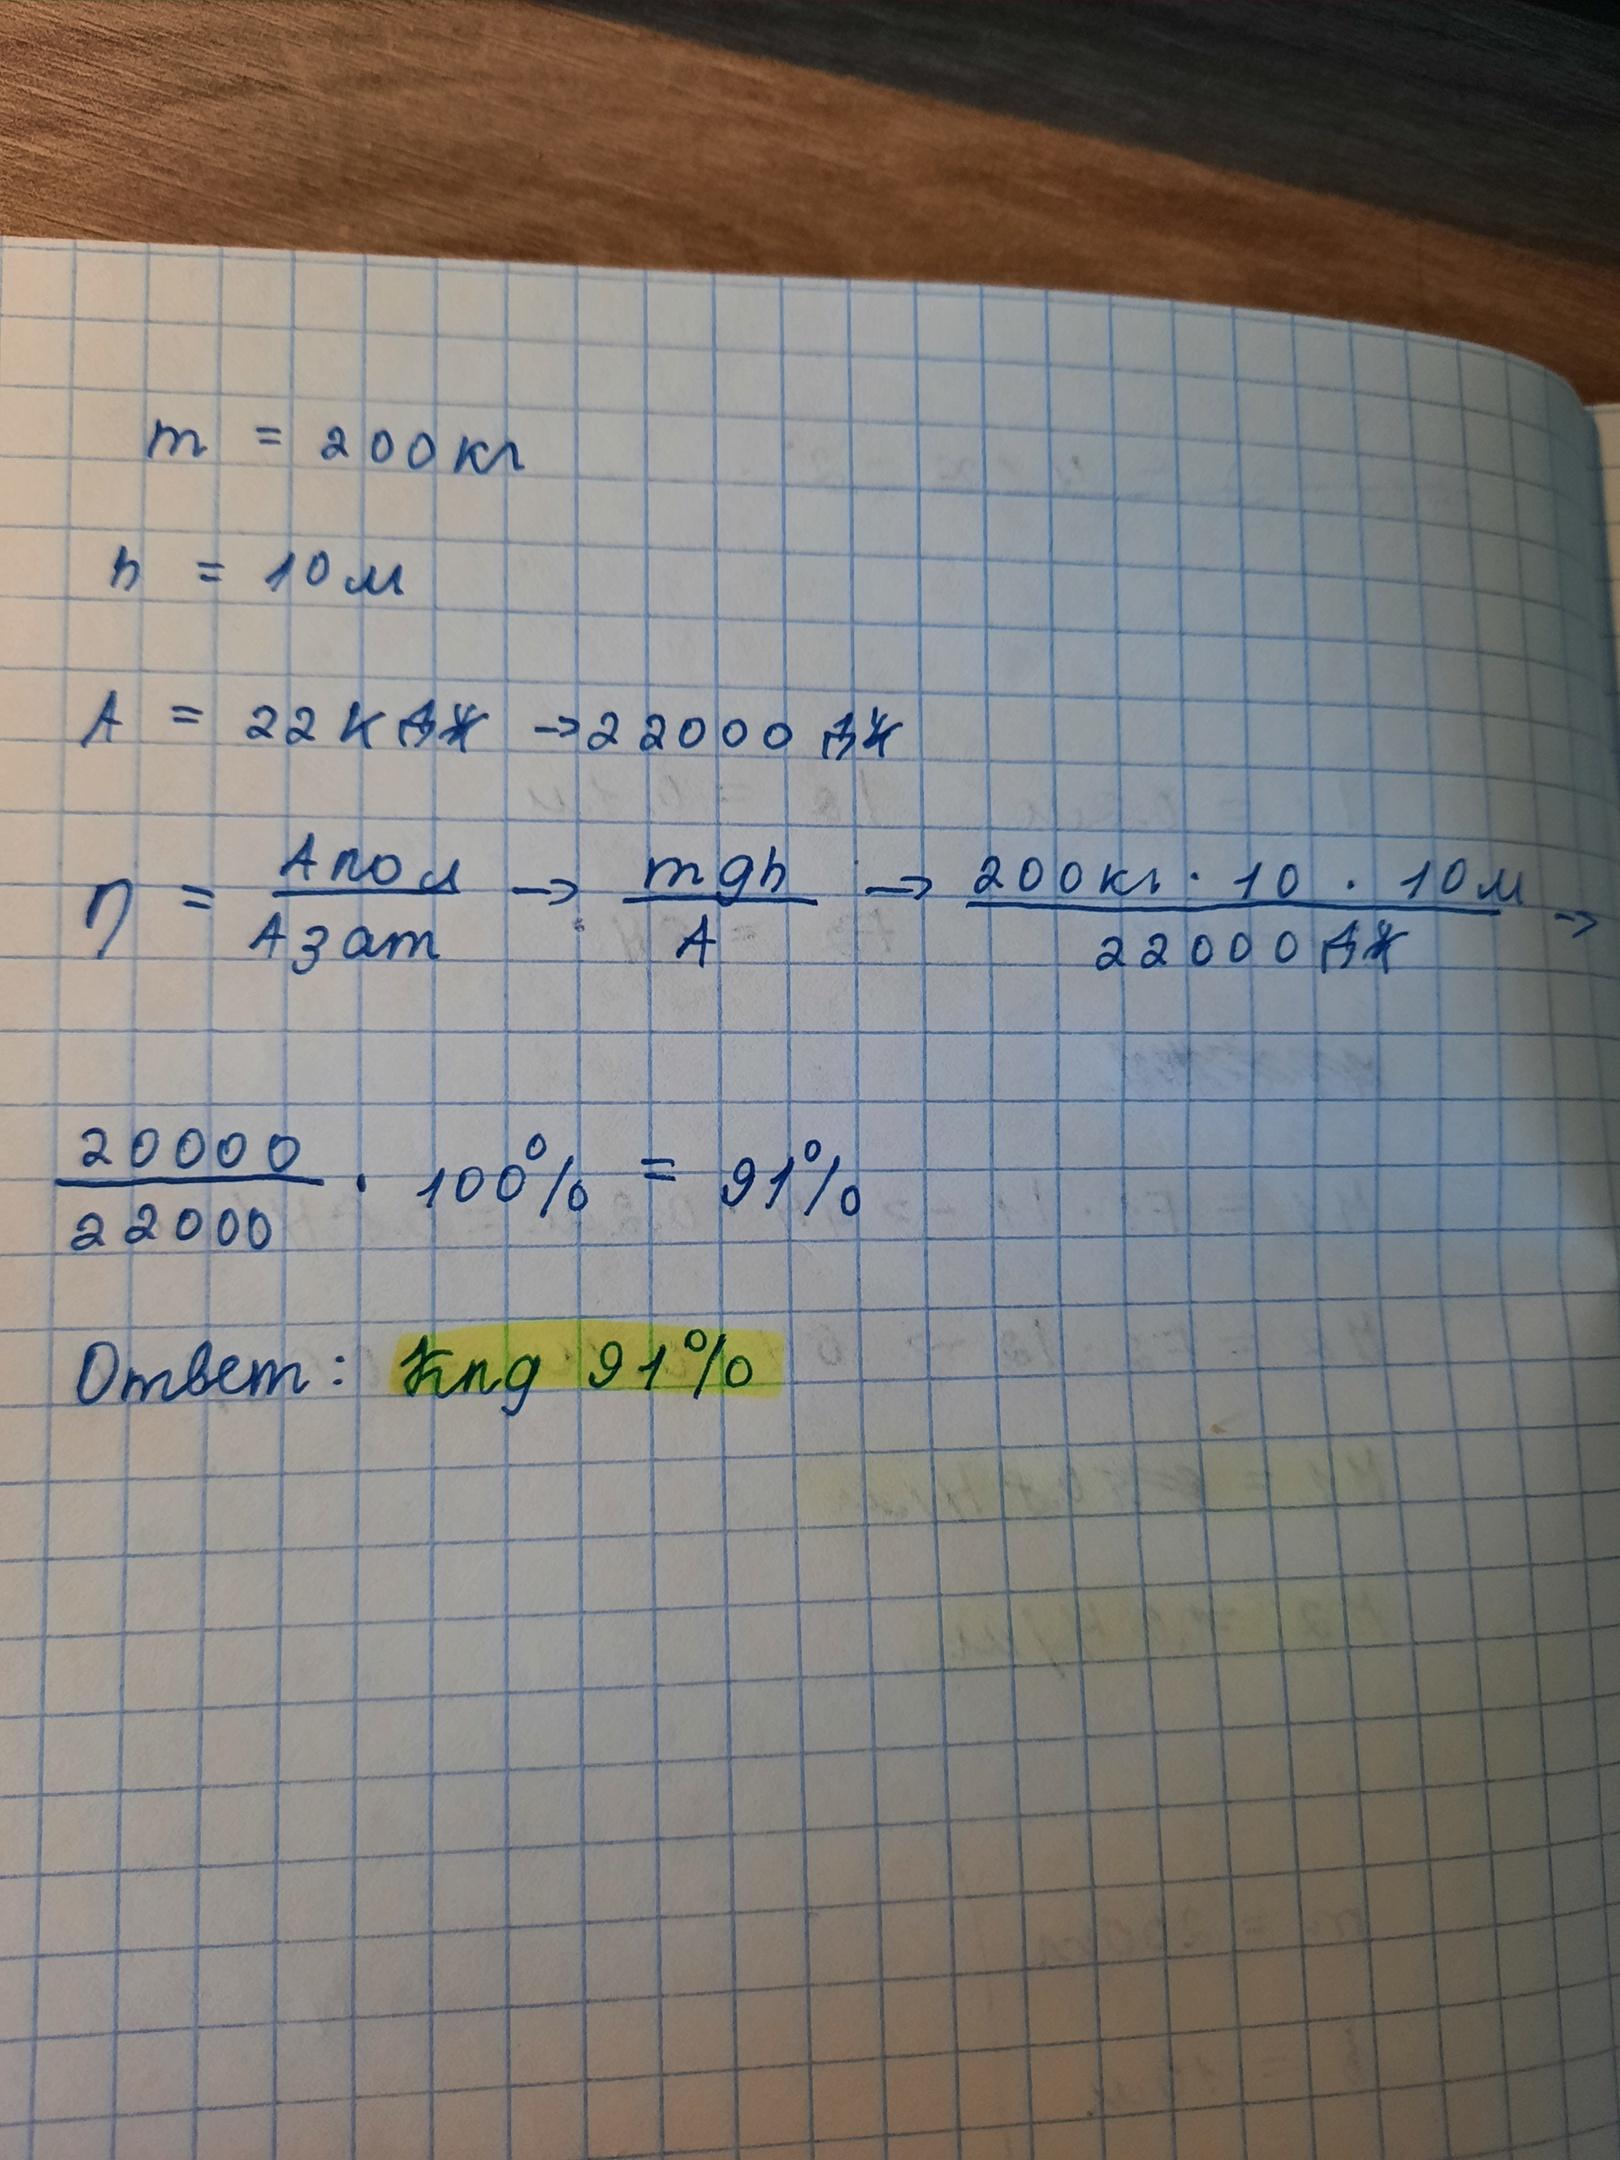 m = 200кг
h = 10м
A = 22кДж → 22000Дж
η = Aпол/Aзат → mgh/A → 200кг · 10 · 10м/22000Дж →
20000/22000 · 100% = 91%
Ответ: Кпд 91%